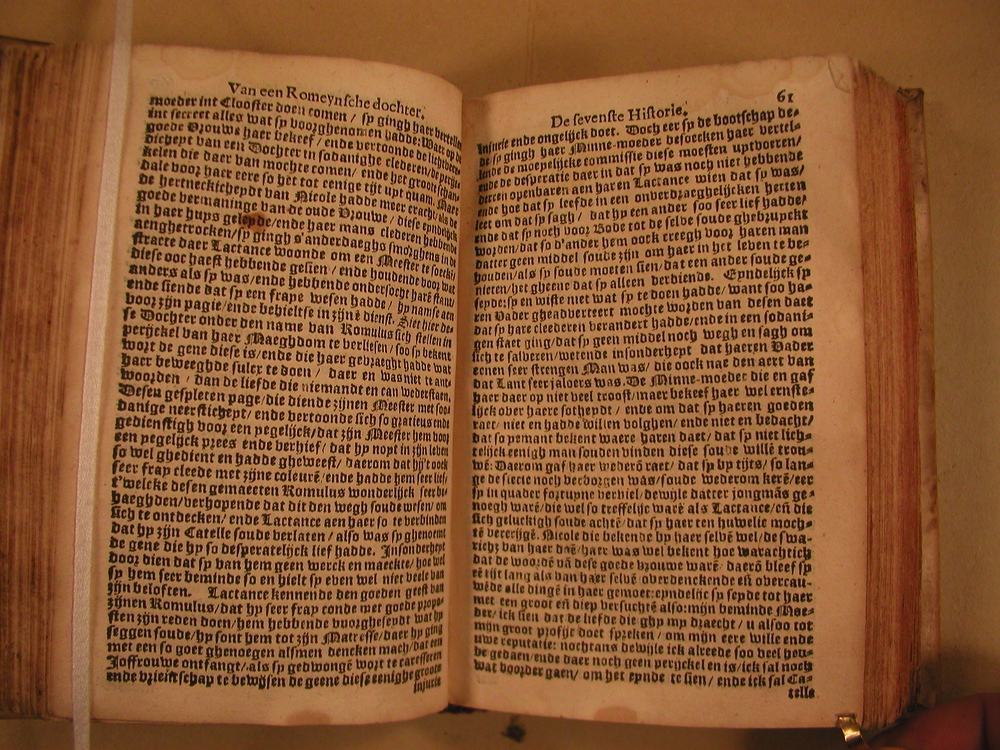 Van een Romeynsche dochter.
moeder int Clooster doen comen / sy gingh haer vertellen
int secreet alles wat sy voorghenomen hadde: Waer op de
goede Vrouwe haer bekeef / ende vertoonde de lichtveer-
dicheyt van een Dochter in sodanighe clederen / de perijc-
kelen die daer van mochte comen / ende het groot schan-
dale voor haer eere so het tot eenige tijt upt quam. Maer
de hertneckicheydt van Nicole hadde meer cracht / als de
goede vermaninge van de oude Vrouwe / diese eyndelijck
in haer huys geleyde / ende haer mans clederen hebbende
aenghetrocken / sy gingh s'anderdaeghs smorghens in de
stracte daer Lactance woonde om een Meester te soecken
diese ooc haest hebbende gesien / ende houdende voor wat
anders als sy was / ende hebbende ondersocht harē stant /
ende siende dat sy een fraye wesen hadde / hy namse aen
voor zijn pagie / ende behieltse in zijnē dienst. Siet hier de-
se Dochter onder den name van Romulus sich stellen in
perijckel van haer Maeghdom te verliesen / soo sy bekent
wort de gene diese is / ende die haer gebracht hadde wat
haer beweeghde sulcx te doen / daer en was niet te ant-
woorden / dan de liefde die niemandt en can wederstaen.
Desen geslepen page / die diende zijnen Meester met soo-
danige neersticheyt / ende vertoonde sich so gratieus ende
gedienstigh voor een yegelijck / dat zijn Meester hem voor
een yegelijck prees ende verhief / dat hy noyt in zijn leven
so wel ghedient en hadde gheweest / daerom dat hy't oock
seer fray cleede met zijne coleurē / ende hadde hem seer lief /
t'welcke desen gemaeckten Romulus wonderlijck seer be-
haeghden / verhopende dat dit den wegh soude wesen / om
sich te ontdecken / ende Lactance aen haer so te verbinden
dat hy zijn Catelle soude verlaten / also was sy ghenoemt
de gene die hy so desperatelijck lief hadde. Insonderheyt
door dien dat sy van hem geen werck en maeckte / hoe wel
sy hem seer beminde so en hielt sy even wel niet veele van
zijn beloften. Lactance kennende den goeden geest van
zijnen Romulus / dat hy seer fray conde met goede propo-
sten zijn reden doen / hem hebbende voorgheseydt wat hy
seggen soude / hy sont hem tot zijn Matresse / daer hy ging
met een so goet ghenoegen alsmen dencken mach / dat een
Joffrouwe ontfange / als sy gedwongē wort te caresseren
ende vrientschap te bewijsen de geene diese eenighe groote
injurie
De sevenste Historie. 61
Injurie ende ongelijck doet. Doch eer sy de bootschap de-
de sy gingh haer Minne-moeder besoecken haer vertel-
lende de moeyelijcke commissie diese moesten uptvoeren /
ende de desperatie daer in dat sy was noch niet hebbende
derren openbaren aen haren Lactance wien dat sy was /
ende hoe dat sy leefde in een onverdraeghelijcken herten
leet om dat sy sagh / dat hy een ander soo seer lief hadde /
ende dat sy noch voor Bode tot de selbe soude ghebruyckt
worden / dat so d'ander hem oock creegh voor haren man
datter geen middel soude zijn om haer in het leven te be-
houden / als sy soude moeten sien / dat een ander soude ge-
nieten / het gheene dat sy alleen verdiende. Eyndelijck sy
seyde: sy en wiste niet wat sy te doen hadde / want soo ha-
ren Vader gheadverteert mochte worden van desen daet
dat sy hare clederen verandert hadde / ende in een sodani-
gen staet ging / dat sy geen middel noch wegh en sagh om
sich te salveren / wetende insonderheyt dat haeren Vader
eenen seer strengen Man was / die oock nae den aert van
dat Lant seer jaloers was. De Minne-moeder die en gaf
haer daer op niet veel troost / maer bekeef haer wel ernste-
lijck over haere sotheydt / ende om dat sy haeren goeden
raet / niet en hadde willen volghen / ende niet en bedacht /
dat so yemant bekent waere haren daet / dat sy niet lich-
telijck eenigh man souden vinden diese soude willē trou-
wē: Daerom gaf haer wederō raet / dat sy by tijts / so lan-
ge de siecte noch verborgen was / soude wederom kerē / eer
sy in quader fortuyne verviel / dewijle datter jongmās ge-
noegh warē / die wel so treffelijc warē als Lactance / eñ die
sich geluckigh soude achtē / dat sy haer ten huwelic moch-
tē vercrijgē. Nicole die bekende by haer selbē wel / de swa-
richz van haer daē / haer was wel bekent hoe warachtich
dat de woordē vā dese goede Vrouwe warē / daerō bleef sy
eē tijt lang als van haer selbē overdenckende eñ overcau-
wēde alle dingē in haer gemoer: eyndelijc sy seyde tot haer
met een groot eñ diep versuchtē also: mijn beminde Moe-
der / ick sien dat de liefde die ghy my draecht / u alsoo tot
mijn groot profijc doet spreken / om mijn eere wille ende
uwe reputatie: nochtans dewijle ick alreede soo veel heu-
be gedaen / ende daer noch geen perijckel en is / ick sal noch
wat voorder gaen / om het eynde te sien / ende ick sal Ca-
telle